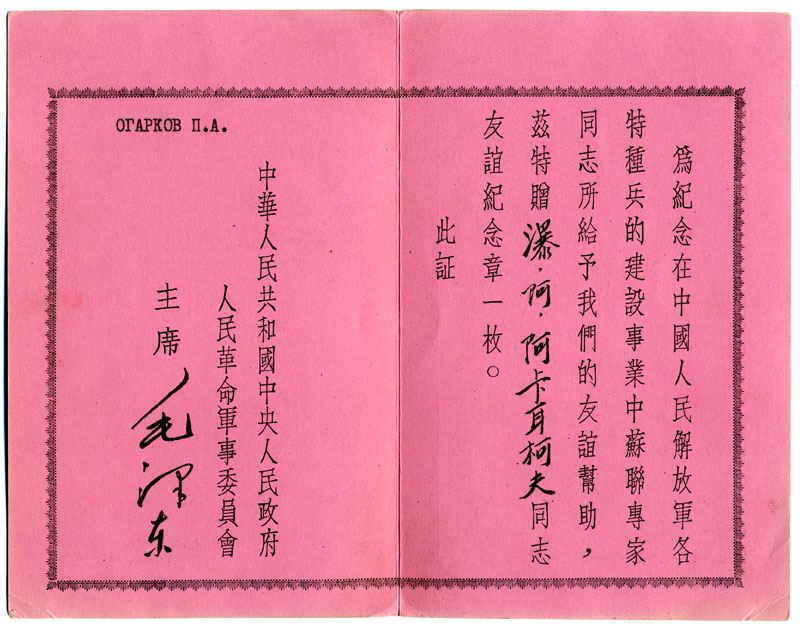 爲紀念在中國人民解放軍各
特種兵的建設事業中蘇聯專家
同志所給予我們的友誼幫助，
茲特贈瀑·阿·阿卡耳柯夫同志
友誼紀念章一枚。
此証
中華人民共和國中央人民政府
人民革命軍事委員會
主席 毛澤东
ОГАРКОВ П.А.